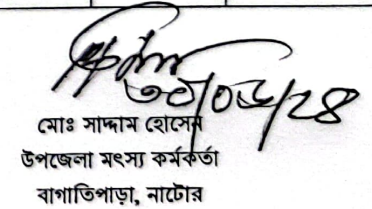 ৩০/০৬/২৪
মোঃ সাদ্দাম হোসেন
উপজেলা মৎস্য কর্মকর্তা
বাগাতিপাড়া, নাটোর